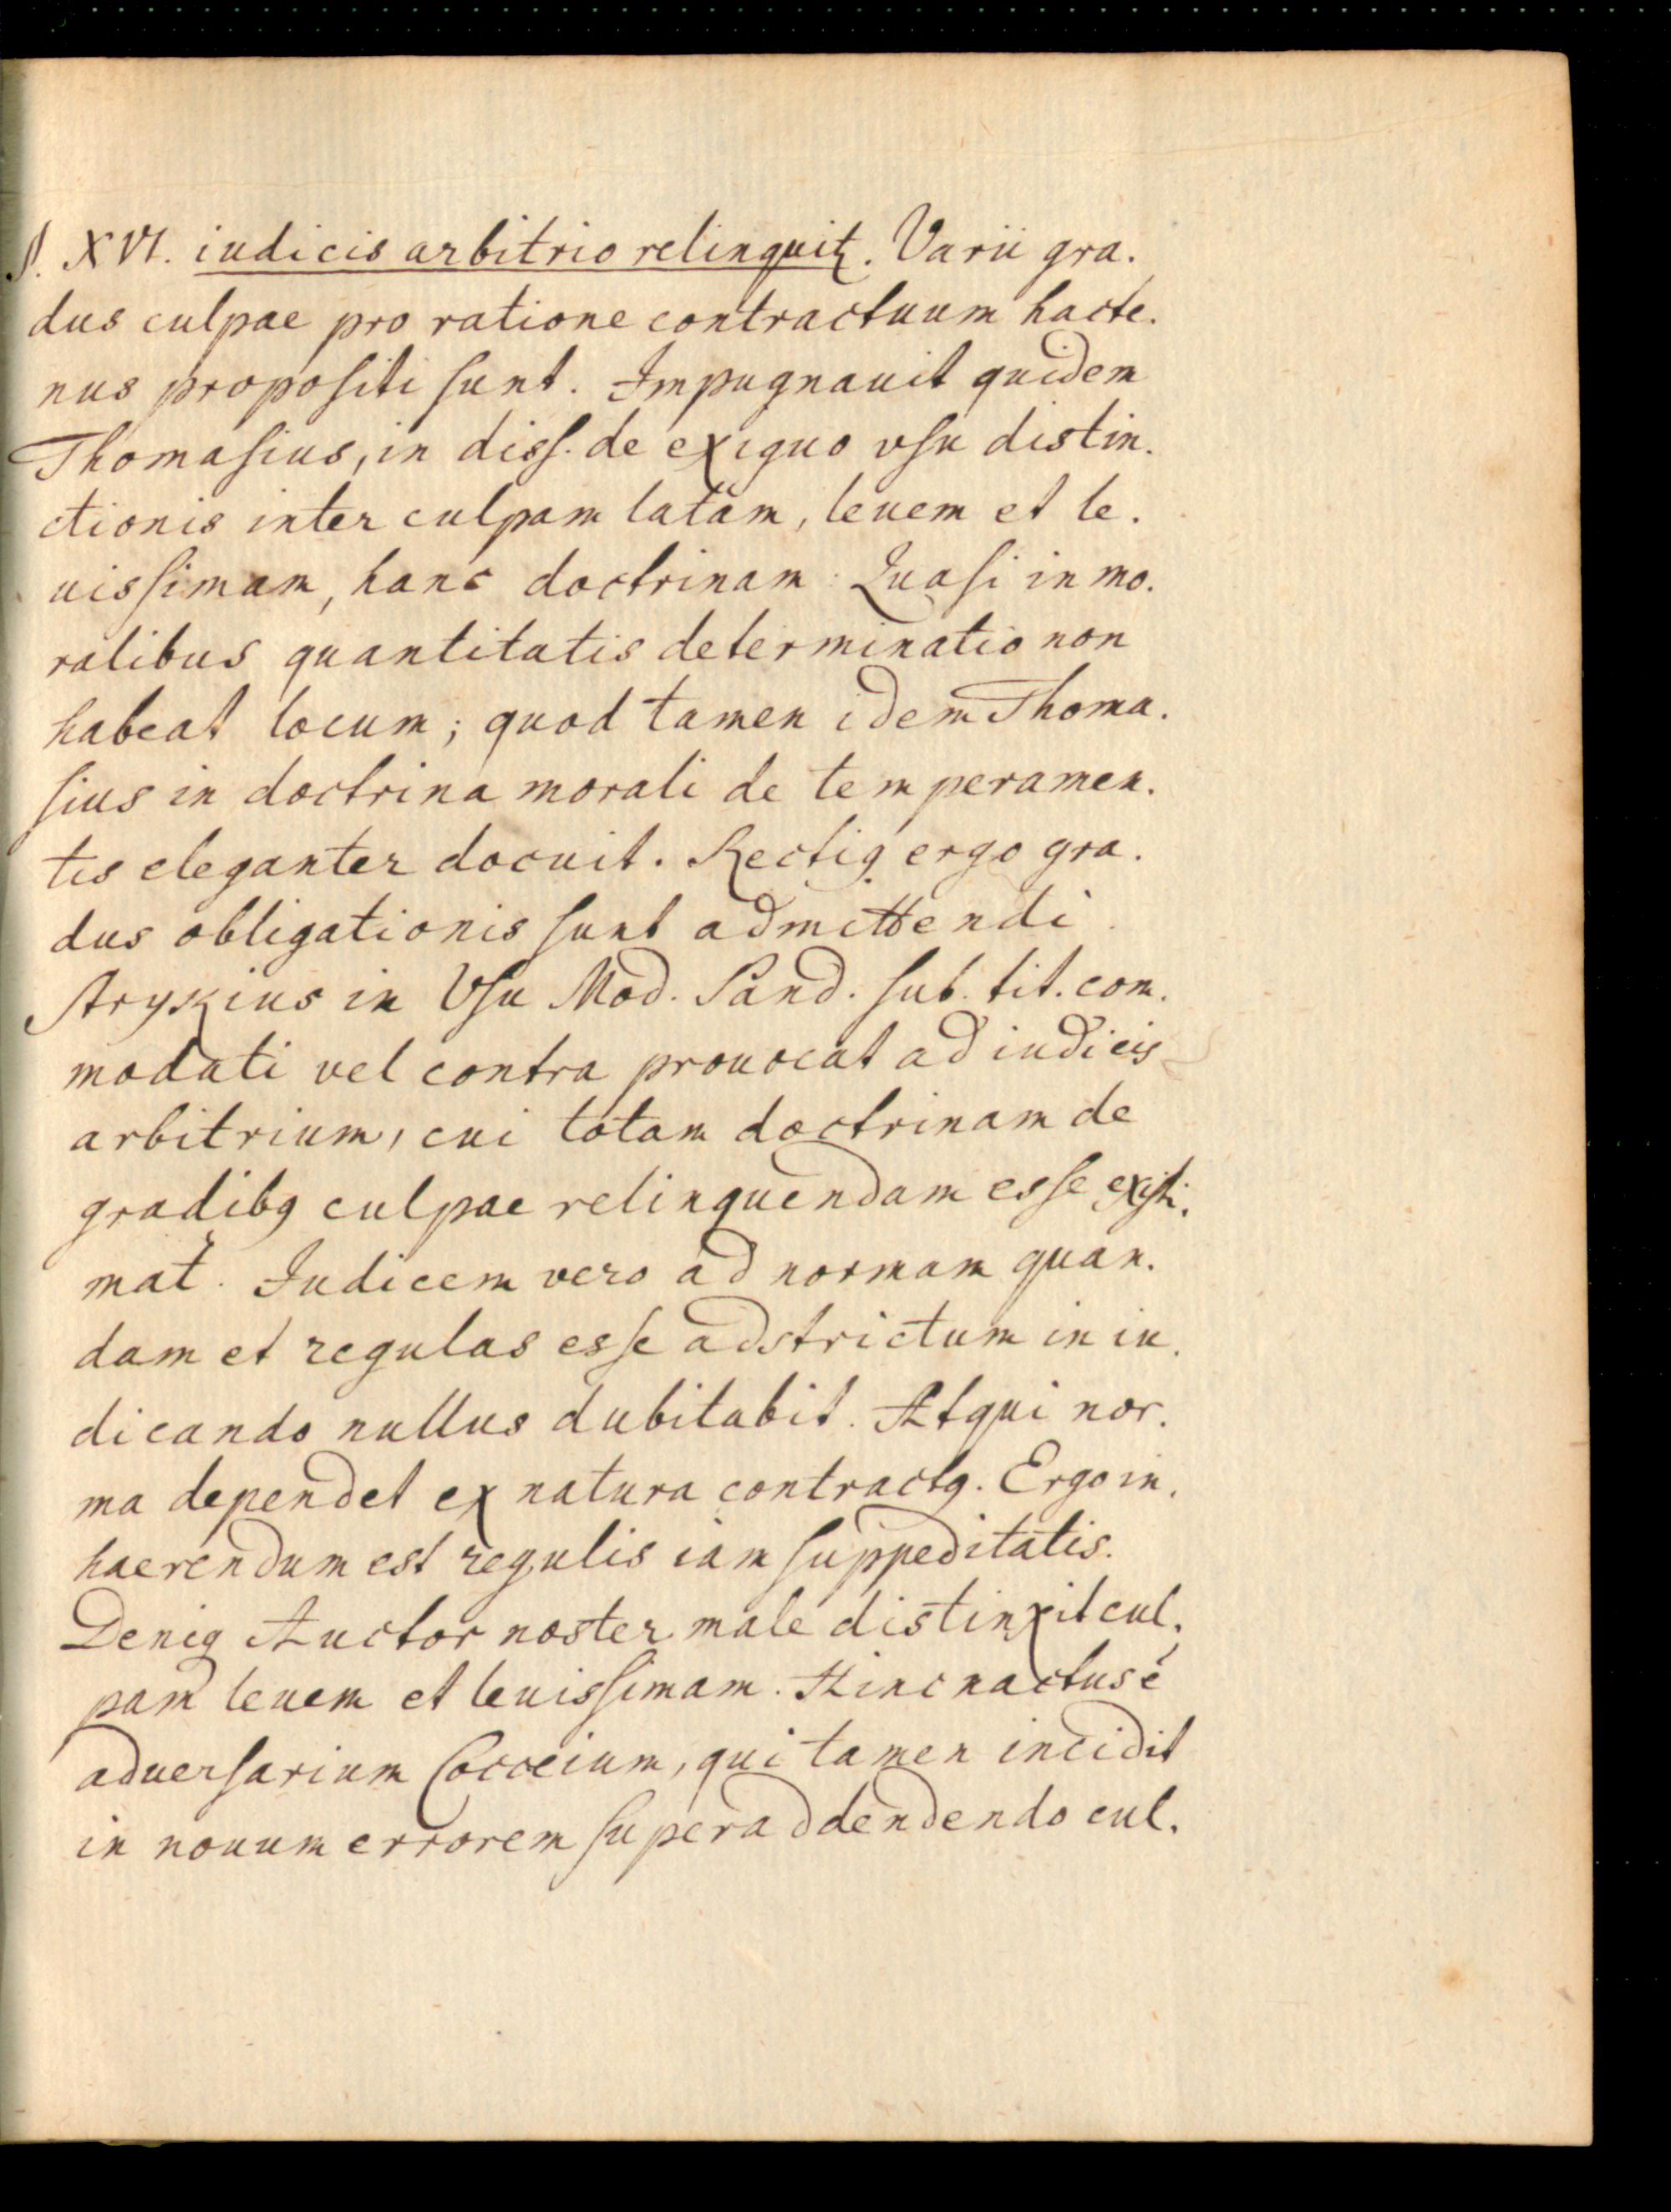 §. XVI. iudicis arbitrio relinquitꝫ. Varii gra.
dus culpae pro ratione contractuum hacte.
nus propoſiti ſunt. Impugnauit quidem
Thomaſius, in disſ. de exiguo vſu distin.
ctionis inter culpam latam, leuem et le.
uisſimam, hanc doctrinam: Quaſi in mo.
ralibus quantitatis determinatio non
habeat locum; quod tamen idem Thoma.
ſius in doctrina morali de temperamen.
tis eleganter docuit. Rectiꝯ ergo gra.
dus obligationis ſunt admittendi.
Strykius in Vſu Mod. Pand. ſub. tit. com.
modati vel contra prouocat ad iudicis
arbitrium, cui totam doctrinam de
gradibꝯ culpae relinquendam esſe exiſti.
mat. Iudicem vero ad normam quan.
dam et regulas esſe adstrictum in iu.
dicando nullus dubitabit. Atqui nor.
ma dependet ex natura contractꝯ. Ergo in.
haerendum est regulis iam ſuppeditatis.
Deniq Auctor noster male distinxit cul.
pam leuem et leuisſimam. Hinc nactus é
aduerſarium Cocceium, qui tamen incidit
in nouum errorem ſuperaddendendo cul.